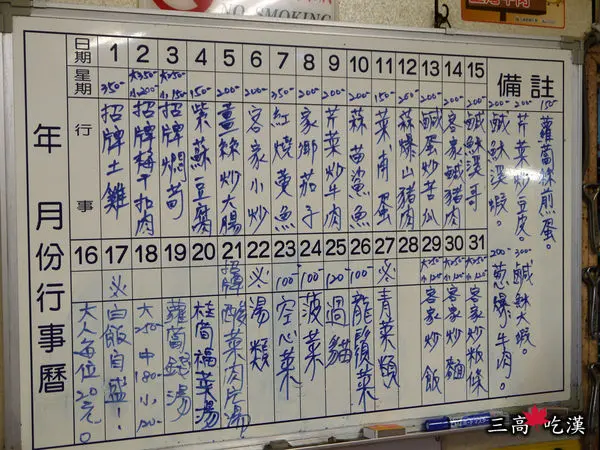 NO SMOKING
年 月份行事曆
日期 1 2 3 4 5 6 7 8 9 10 11 12 13 14 15 備註
星期
行事
350- 招牌土雞
大350- 小200- 招牌梅干扣肉
大250- 小150- 招牌焖筍
150- 紫蘇豆腐
200- 薑絲炒大腸
200- 客家小炒
350- 紅燒魚
200- 家鄉茄子
200- 芹菜炒牛肉
200- 蒜苗鯊魚
150- 菜甫蛋
200- 蒜爆山豬肉
200- 鹹蛋炒苦瓜
200- 客家鹹豬肉
鹹酥溪哥
200- 鹹酥溪蝦。
200- 芹菜炒豆皮。
150- 蘿蔔絲煎蛋。
300- 鹹酥大蝦。
200- 蔥爆牛肉。
16 17 18 19 20 21 22 23 24 25 26 27 28 29 30 31
大人每位20元。
白飯自盛!
大250- 中180- 小120-
蘿蔔錢湯
桂筍福菜湯
招牌 酸菜肉片湯
湯類
100- 空心菜
100- 菠菜
120- 過貓
100- 龍鬚菜
青菜類
客家炒飯
客家炒麵
客家炒粄條
三高 吃漢